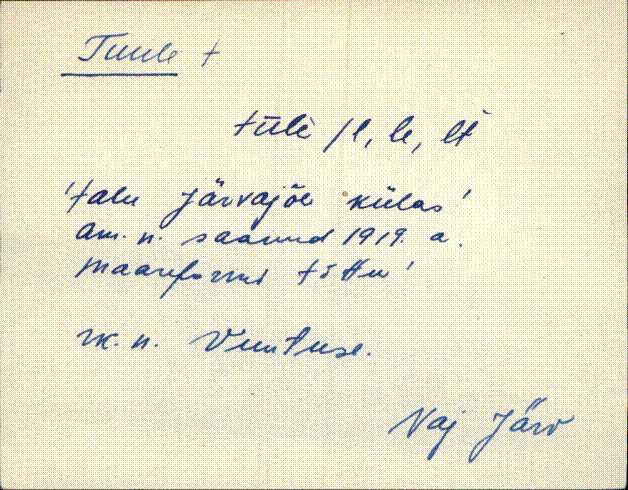 Tuule t
tüle /l, le, lt
'talu Järvajõe külas'
am. n. saanud 1919. a.
maareformi tõttu'
rk. n. Vuntuse.
Vaj Järv